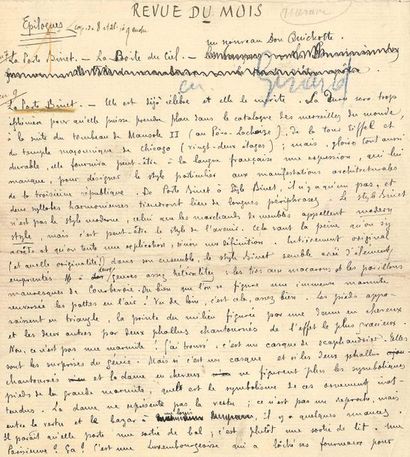 REVUE DU MOIS
Epilogues
un nouveau Don Quichotte
La Porte Binet. — La Boîte du Ciel. —
La Porte Binet. — Elle est déjà célèbre et elle le mérite. Sa durée sera trop
éphémère pour qu'elle puisse prendre place dans le catalogue des merveilles du monde,
à la suite du tombeau de Mausole II (au Père-Lachaise), de la tour Eiffel et
du temple maçonnique de Chicago (vingt-deux étages) ; mais, gloire tout aussi
durable, elle fournira peut-être à la langue française une expression, qui lui
manque, pour désigner le style particulier aux manifestations architecturales
de la troisième république. De Porte Binet à Style Binet, il n'y a qu'un pas, et
deux syllabes harmonieuses tiendront lieu de longues périphrases. Le style Binet
n'est pas le style moderne, celui que les marchands de meubles appellent modern
style mais c'est peut-être le style de l'avenir. Cela vaut la peine qu'on s'y
arrête et qu'on tente une explication, sinon une définition. Entièrement original
(et quelle originalité !) dans son ensemble, le style Binet semble avoir d'éléments
empruntés
mauresques de Courbevoie. Ou bien que l'on se figure une immense marmite
renversée les pattes en l'air ! Vu de loin, c'est cela, assez bien. Les pieds appa-
raissent en triangle, la pointe du milieu figurée par une dame en cheveux
et les deux autres par deux phallus chantournés de l'effet le plus gracieux.
Non, ce n'est pas une marmite ! J'ai trouvé, c'est un casque de scaphandrier. Telles
sont les surprises du génie. Mais si c'est un casque et si les deux phallus
chantournés et la dame en cheveux ne figurent plus les symboliques
pieds de la grande marmite, quel est le symbolisme de ces ornements inat-
tendus. La dame ne représente pas la vertu ; ce n'est pas un reproche, mais
entre la vertu et le bazar à il y a quelques nuances.
Il paraît qu'elle porte une sortie de bal ; c'est plutôt une sortie de lit. Une
Parisienne ? Ça ! C'est une Luxembourgeoise qui a lâché ses fourneaux pour